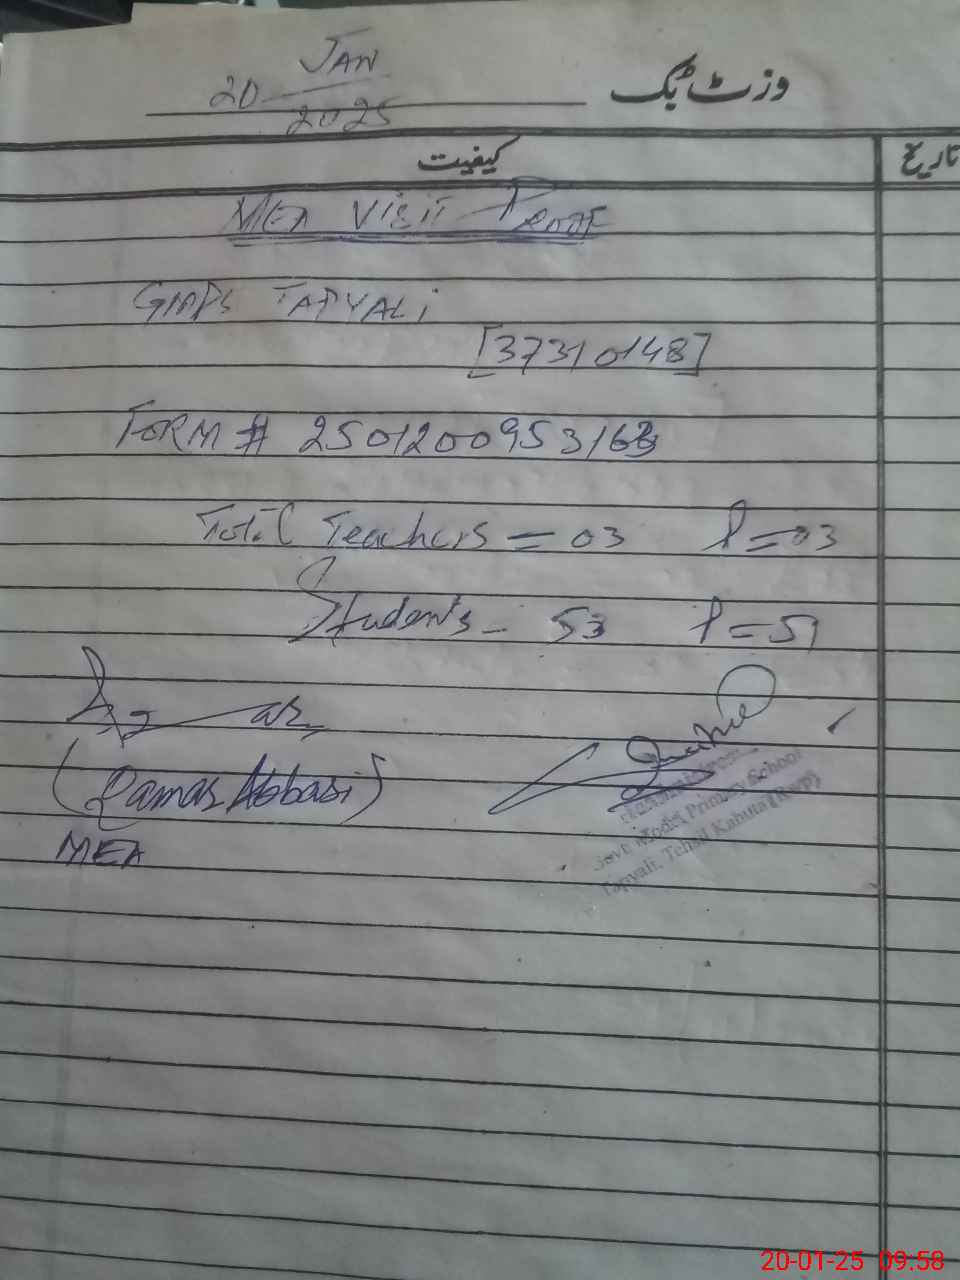 20 JAN 2025
وزٹ بک
تاریخ کیفیت
MEA VISIT PROOF
GMPS TAPYALI
[37310148]
FORM # 250120095316
Total Teachers = 03 P=03
Students - 53 P=51
(Qamar Abbasi)
MEA
Govt. Model Primary School
Tapyali, Tehsil Kahuta (Rwp)
20-01-25 09:58